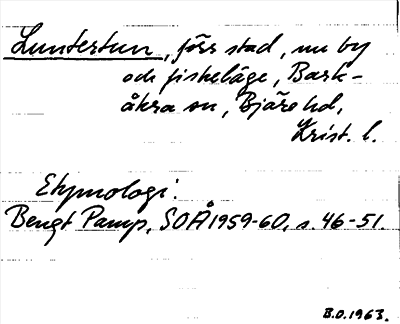 Luntertun, förr stad, nu by
och fiskeläge, Bark-
åkra sn, Bjäre hd,
Krist. l.
Etymologi:
Bengt Pamp, SOÅ 1959-60, s. 46-51.
B.O. 1963.